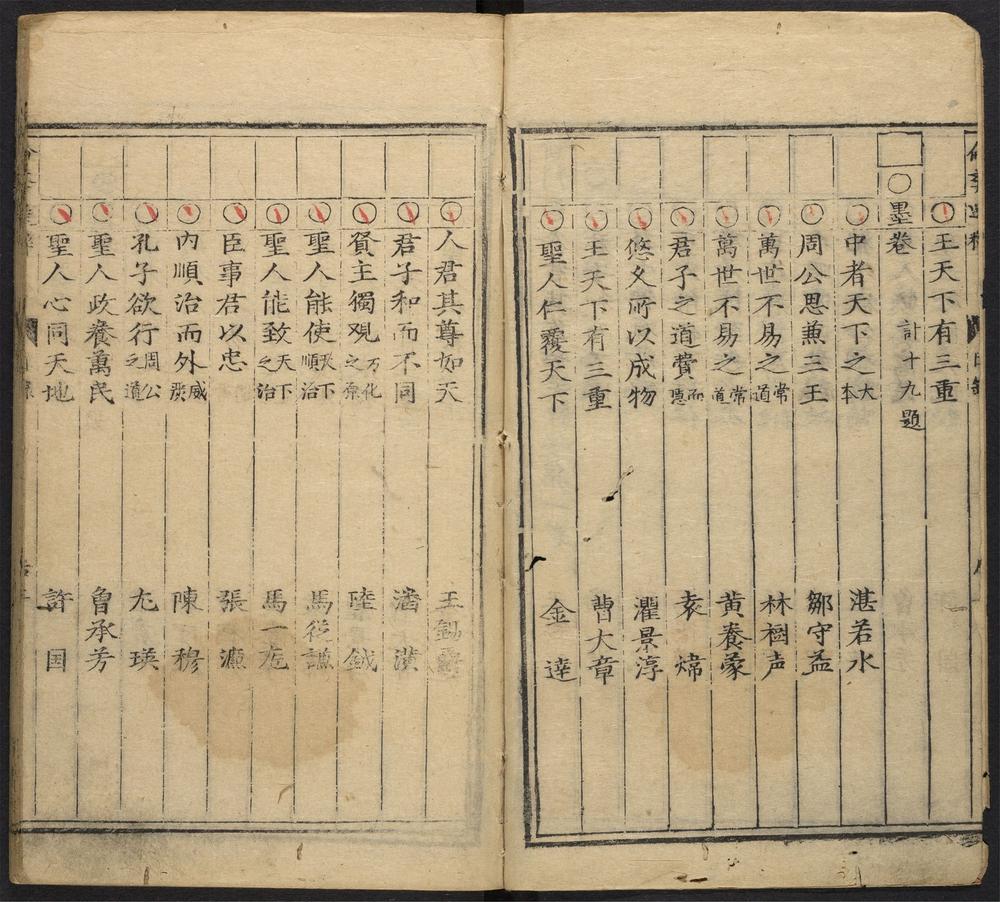 王天下有三重
○墨卷 計十九題
中者天下之大本 湛若水
周公思兼三王 鄒守益
萬世不易之常道 林樹声
萬世不易之常道 黃養蒙
君子之道費而隱 袁煒
悠久所以成物 瞿景淳
王天下有三重 曹大章
聖人仁覆天下 金達
人君其尊如天 王錫爵
君子和而不同 潘潢
賢主獨觀万化之原 陸鉞
聖人能使天下順治 馬從謙
聖人能致天下之治 馬一龙
臣事君以忠 張濂
內順治而外威嚴 陳穆
孔子欲行周公之道 尢瑛
聖人政養萬民 魯承芳
聖人心同天地 許国